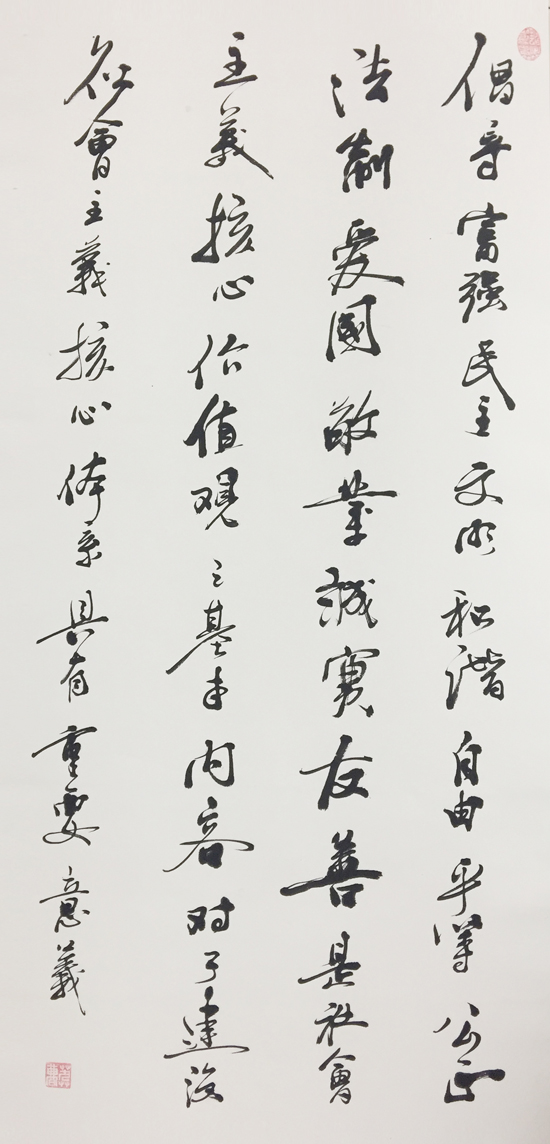 倡导富强民主文明和谐自由平等公正
法制爱國敬業誠實友善是社會
主義核心价值观之基本内容对于建设
社會主義核心体系具有重要意義